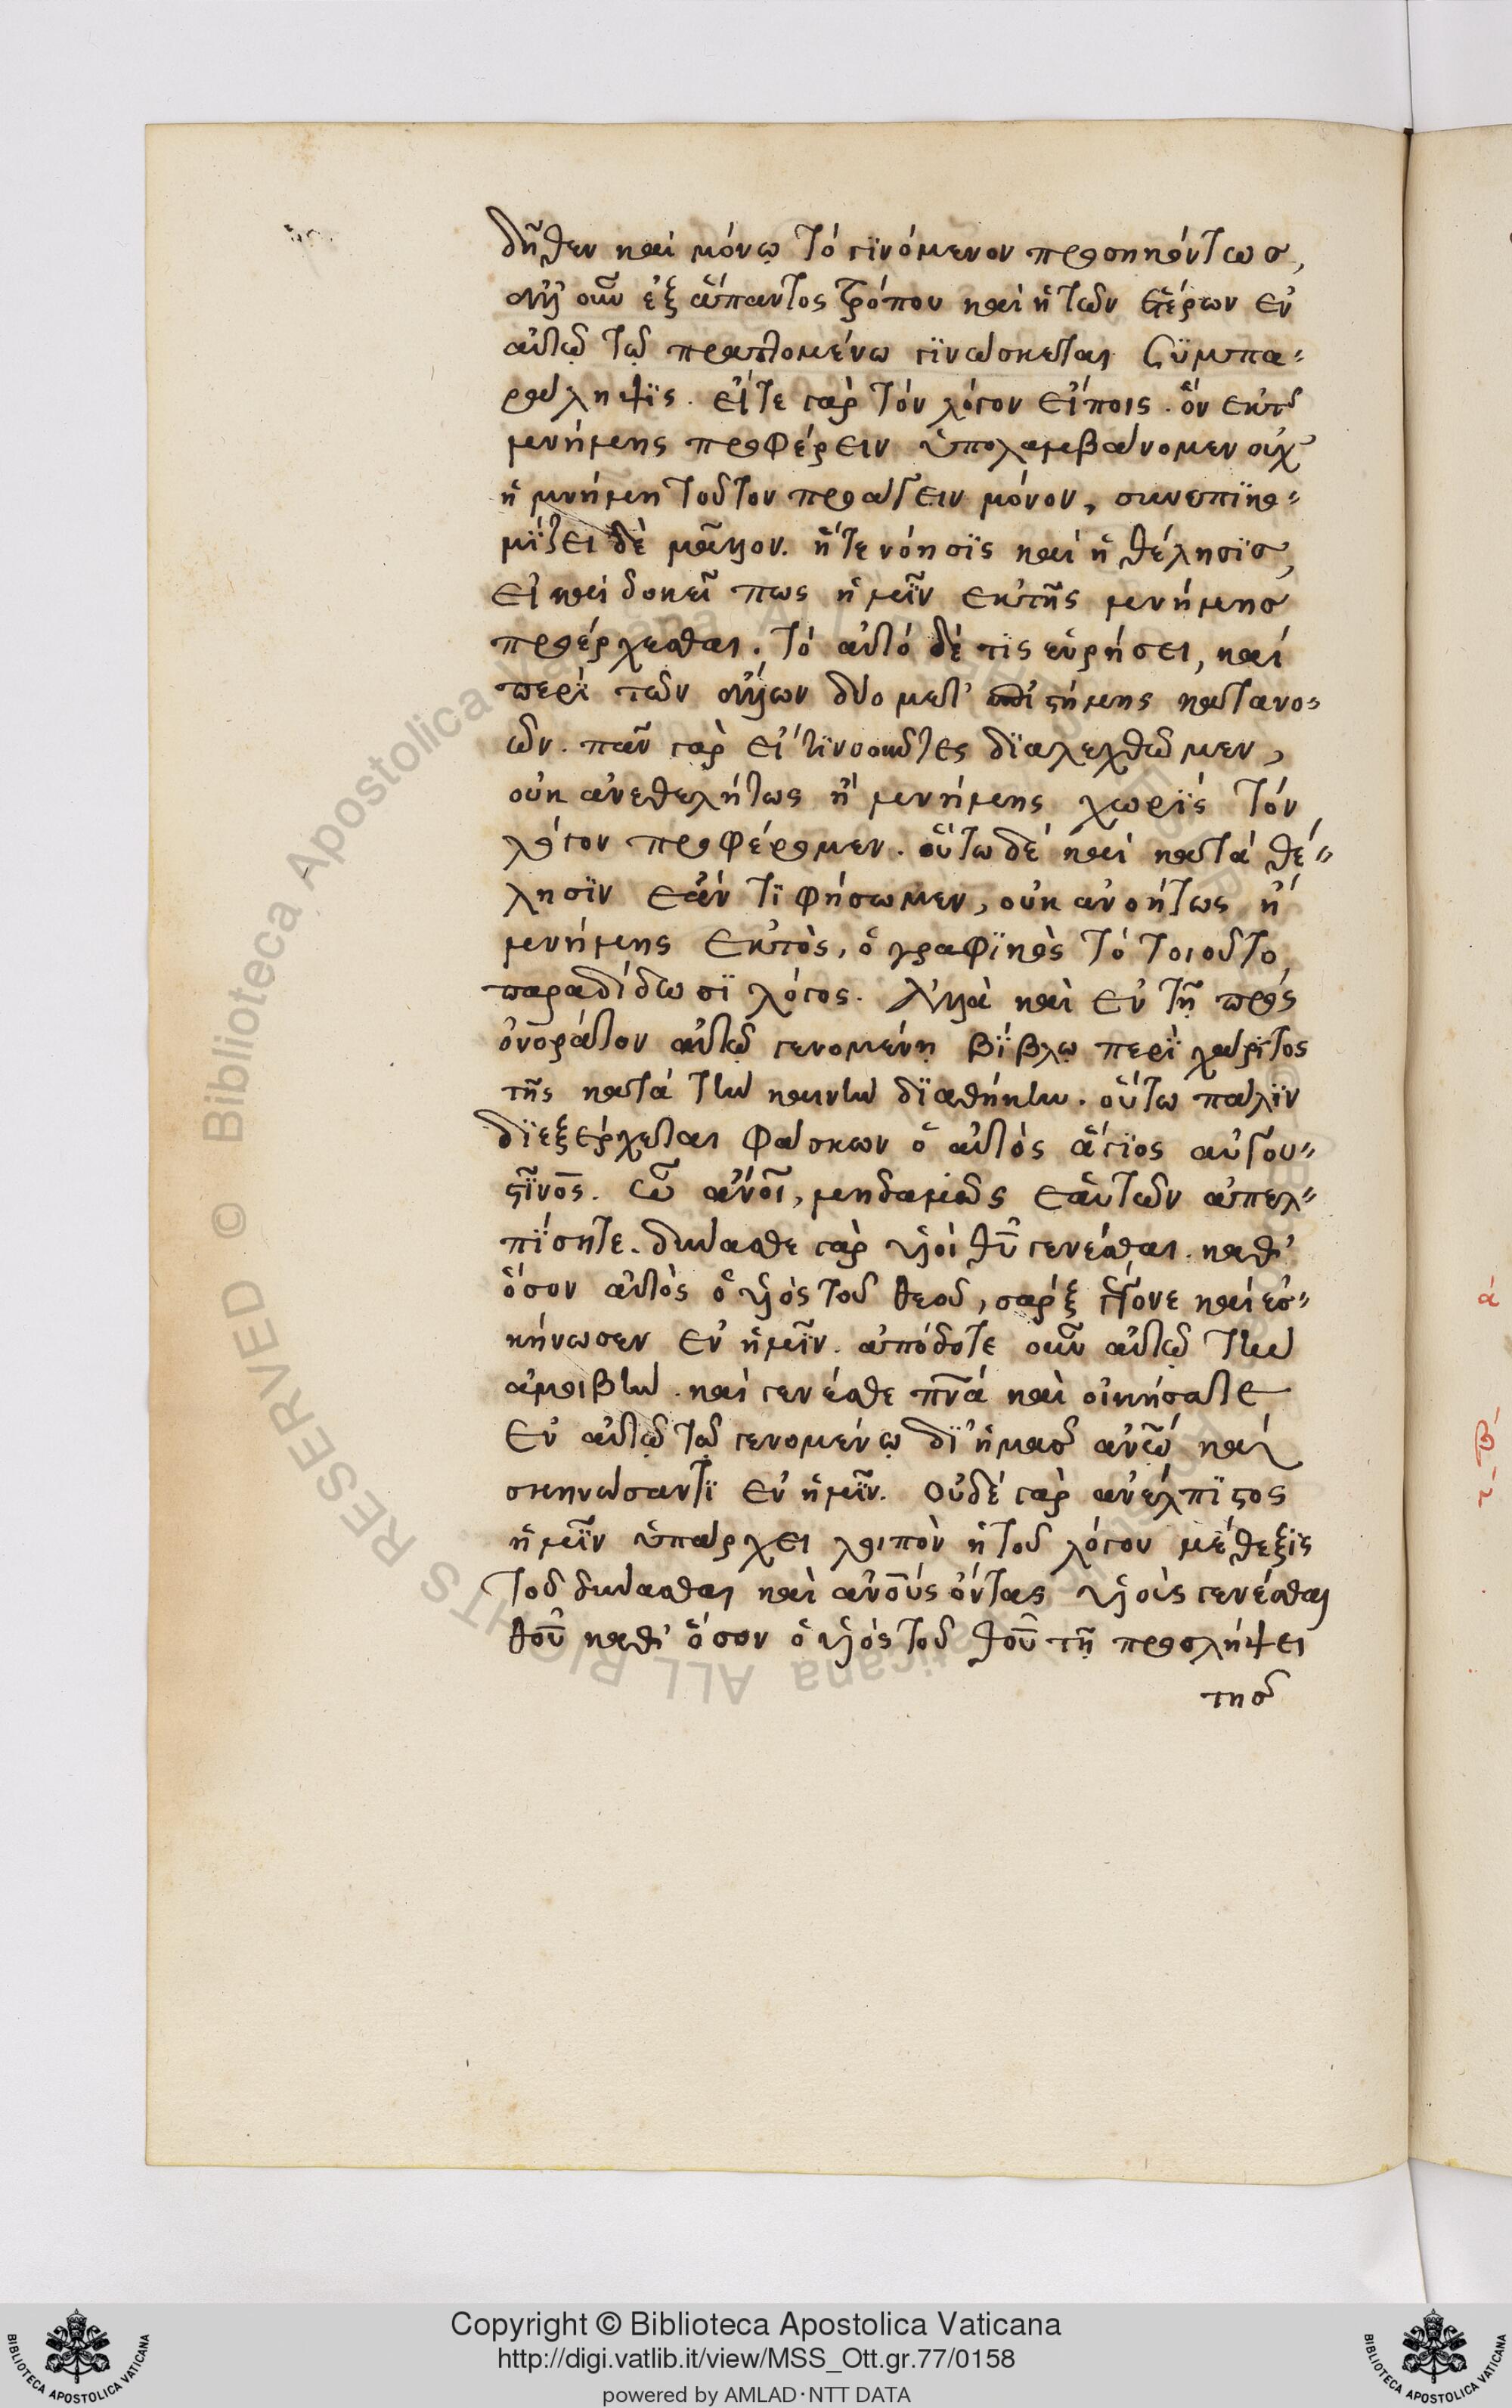 δῆθεν καὶ μόνῳ τὸ γϊνόμενον προσηκόντως,
ἀλλ' οὖν ἐξ ἅπαντος τρόπου καὶ ἡ τῶν ἑτέρων ἐν
αὐτῷ τῷ πραττομένω γϊνώσκεται ςϋμπα-
ράληψϊς. εἴτε γὰρ τὸν λόγον εἴποις. ὃν ἐκ τῆς
μνήμης προφέρειν ὑπολαμβάνομεν οὐχ'
ἡ μνήμη τοῦτον προάγειν μόνον, συνεπϊκο-
μΐζει δὲ μᾶλλον. ἥ τε νόησϊς καὶ ἡ θέλησϊς,
εἰ καὶ δοκεῖ πως ἡμῖν ἐκ τῆς μνήμης
προέρχεσθαι. τὸ αὐτὸ δέ τϊς εὑρήσει, καὶ
περὶ τῶν ἄλλων δύο μετ' ἐπιςήμης κατανο-
ῶν. πᾶν γὰρ εἴ τϊ νοοῦντες δϊαλεχθῶμεν,
οὐκ ἀνεθελήτως ἢ μνήμης χωρὶς τὸν
λόγον προφέρομεν. οὕτω δὲ καὶ κατὰ θέ-
λησϊν ἐάν τϊ φήσωμεν, οὐκ ἀνοήτως ἢ
μνήμης ἐκτὸς, ὁ γραφϊκὸς τὸ τοιοῦτο
παραδίδωσϊ λόγος. Ἀλλὰ καὶ ἐν τῇ πρὸς
ὀνοράτον αὐτῷ γενομένῃ βΐβλῳ περὶ χάρϊτος
τῆς κατὰ τὴν καινὴν δϊαθήκην. οὕτω πάλϊν
δϊεξέρχεται φάσκων ὁ αὐτὸς ἅγϊος αὐγου-
ςῖνος. Ὦ ἄνοι, μηδαμῶς ἑαὐτῶν ἀπελ-
πΐσητε. δύνασθε γὰρ υἱοὶ θυ γενέσθαι. καθ'
ὅσον αὐτὸς ὁ υἱὸς τοῦ θεοῦ, σὰρξ γέγονε καὶ ἐσ-
κήνωσεν ἐν ἡμῖν. ἀπόδοτε οὖν αὐτῷ τὴν
ἀμοιβὴν. καὶ γενέσθε πνά καὶ οἰκήσατε
ἐν αὐτῷ τῷ γενομένῳ δϊ' ἡμᾶς ἀνω καὶ
σκηνώσαντϊ ἐν ἡμῖν. Οὐδὲ γὰρ ἀνέλπϊςος
ἡμῖν ὑπάρχει λοιπὸν ἡ τοῦ λόγου μέθεξϊς
τοῦ δύνασθαι καὶ ἀνους ὄντας υἱοὺς γενέσθαι
θοῦ καθ' ὅσον ὁ υἱὸς τοῦ θοῦ τῇ προσλήψει
τῆς
Copyright © Biblioteca Apostolica Vaticana
http://digi.vatlib.it/view/MSS_Ott.gr.77/0158
powered by AMLAD·NTT DATA